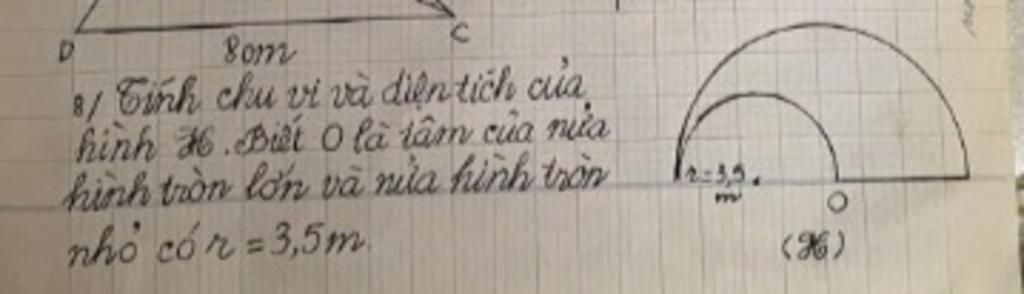 D
C
80m
8/ Tính chu vi và diện tích của
hình H. Biết O là tâm của nửa
hình tròn lớn và nửa hình tròn
nhỏ có r = 3,5m
r = 3,5
m
O
(H)